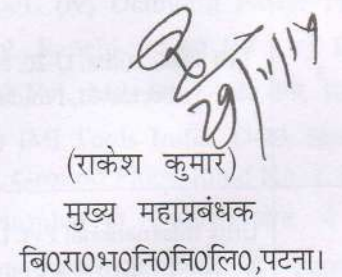 29/11/19
(राकेश कुमार)
मुख्य महाप्रबंधक
बि0रा0भ0नि0नि0लि0,पटना।